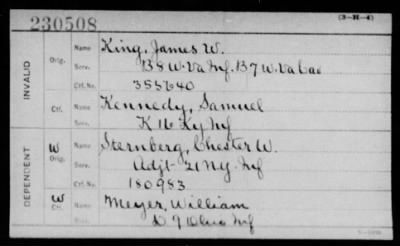 230508
(3-H-4)
INVALID
Orig.
Name King, James W.
Serv. 138 W. Va Inf. 137 W. Va Cav
Ctf. No. 353640
Ctf.
Name Kennedy, Samuel
Serv. K 16 Ky Inf
DEPENDENT
W Orig.
Name Sternberg, Chester W.
Serv. Adjt 21 Ny. Inf
Ctf. No. 180983
W Ctf.
Name Meyer, William
Serv. D 9 Ohio Inf